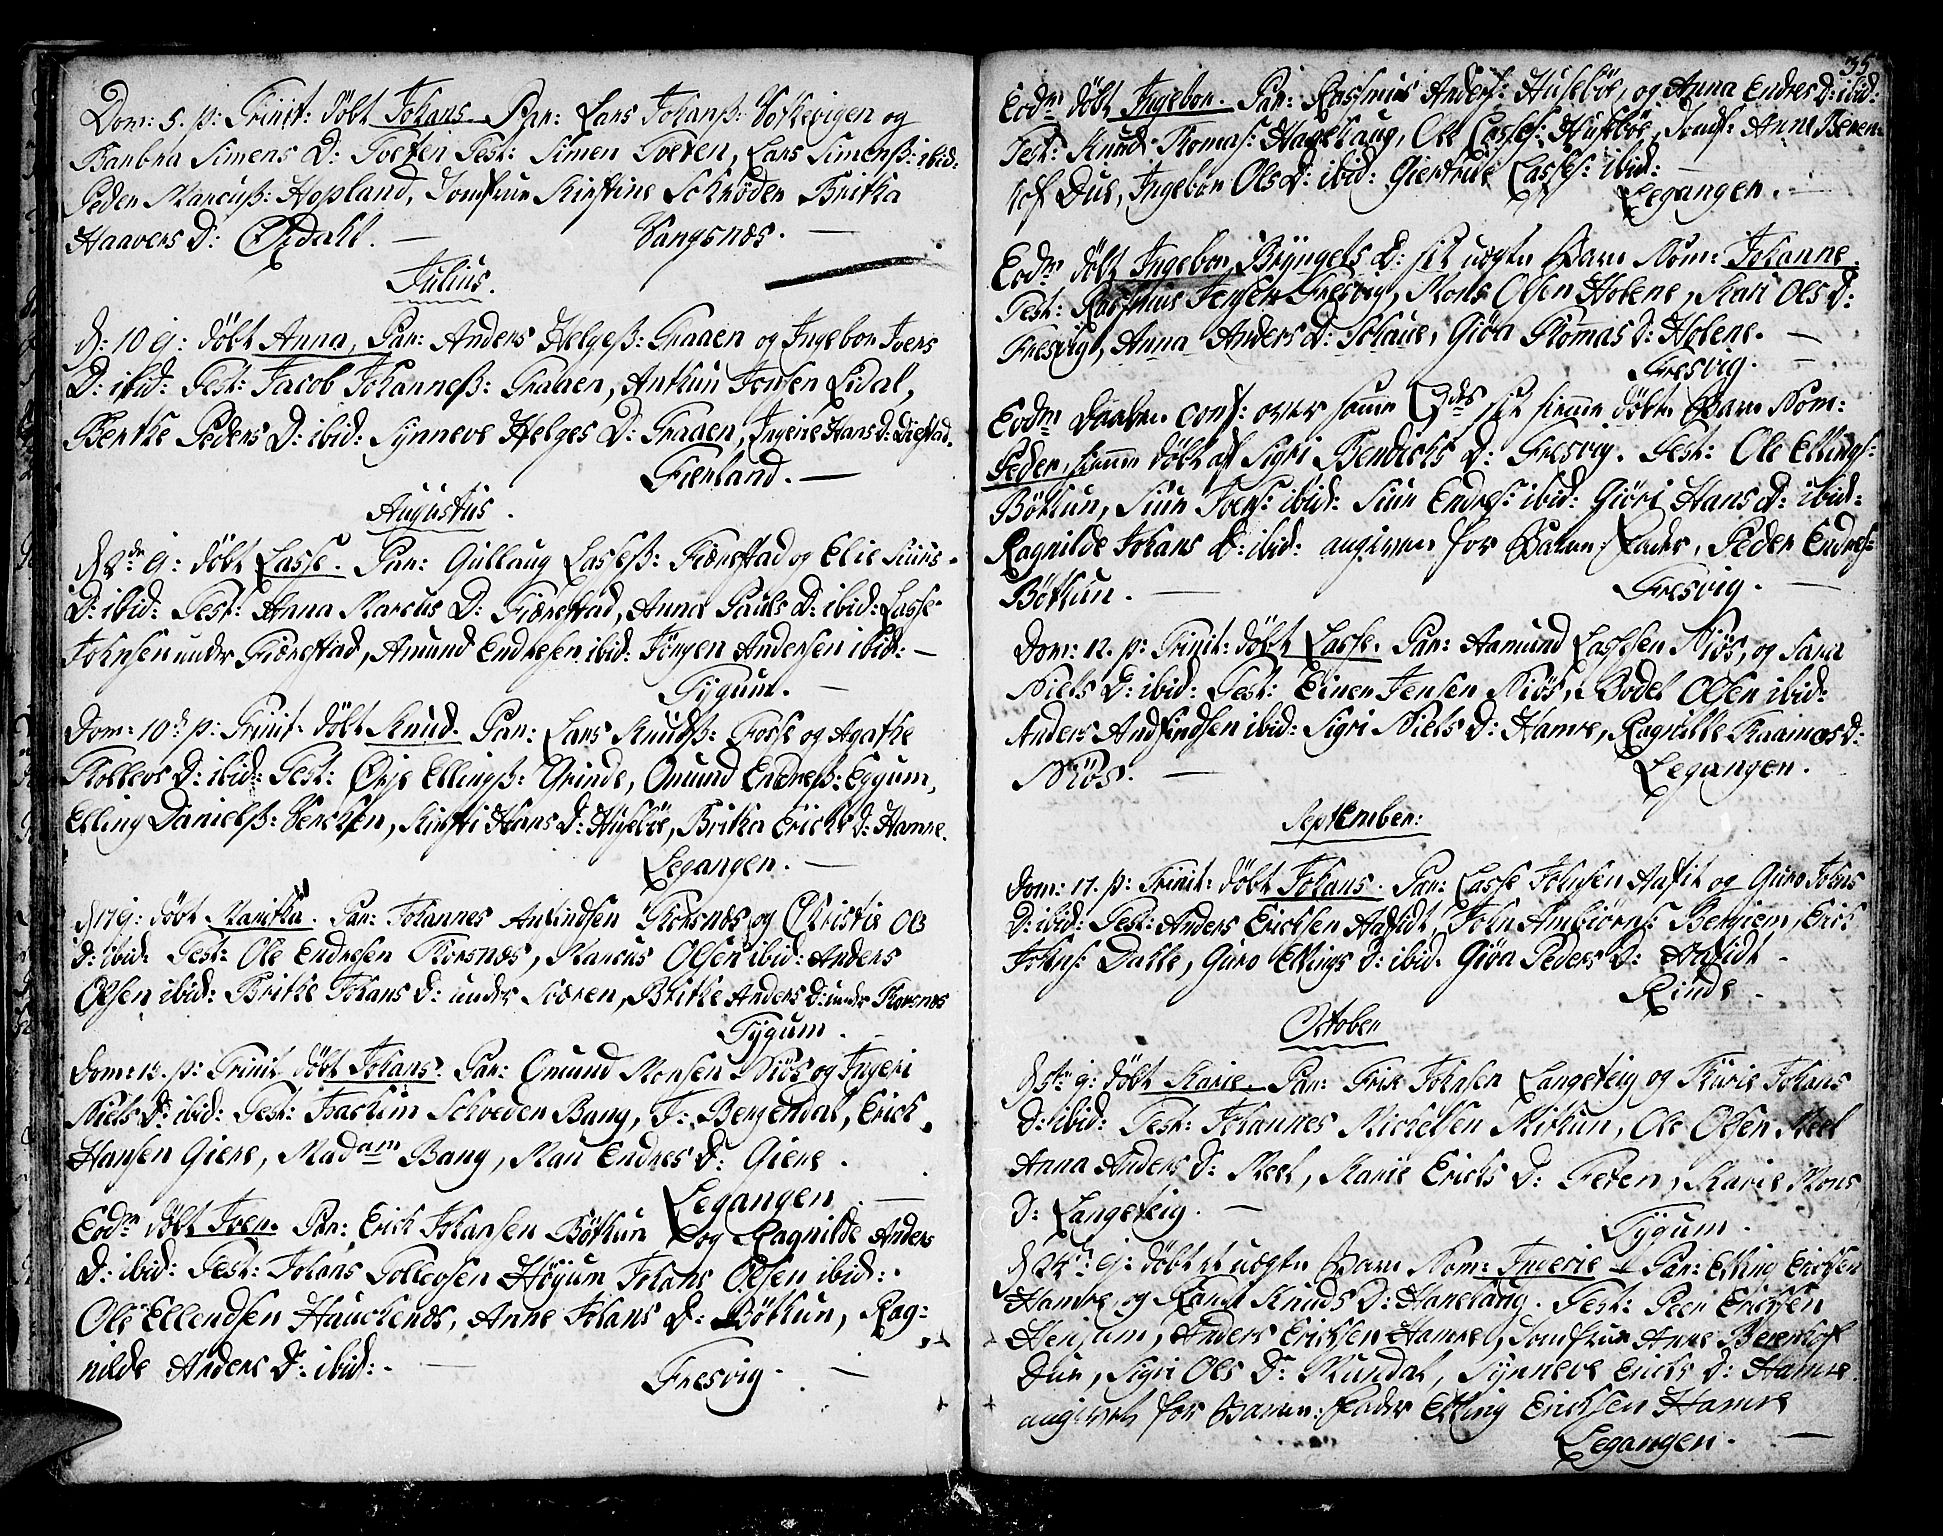 Dom: 5. p: Trinit: døbt Johans. Par: Lars Johanß: og
Barbra Simens D: Tveten Test: Simen Tveten, Lars Simenß: ibid:
Peder Marcuß: Hopland, Jomfrue Kirstine Schrøder Britha
Haavers D: Øxdahl. — Vangsnæs. —
Julius.
d: 10 ej: døbt Anna, Par: Anders Helgeß: Graaen og Ingebor Ivers
D: ibid: Test: Jacob Johanneß: Graaen, Anthun Jensen Eidal,
Berthe Peders D: ibid: Synneve Helges D: Graaen, Ingerie Hans D:
Fierland. —
Augustus.
d 2de ej: døbt Lasse. Par: Gullaug Lasseß: Fiærestad og Elie Siurs
D: ibid: Test: Anna Marcus D: Fiærestad, Anna Pauls D: ibid: Lasse
Johnsen under Fiærestad, Amund Endresen ibid: Jörgen Andersen ibid: —
Tygum. —
Dom: 10de p: Trinit: døbt Knud. Par: Lars Knudß: Fosse og Agathe
Tollevs D: ibid: Test: Ørje Ellingß: Grinde, Omund Endreß: Eggum,
Elling Danielß: Henchsen, Kirsti Hans D: Husebøe, Britha Erichs D: Hamre.
Legangen. —
d 17 ej: døbt Maritha. Par: Johannes Anfindsen Thorsnæs og Christie Ols
D: ibid: Test: Ole Endresen Thorsnæs, Marcus Olsen ibid: Anders
Olsen ibid: Brithe Johans D: under Siøren, Brithe Anders D: under Thorsnes
Tygum. —
Dom: 13. p: Trinit døbt Johans. Par: Omund Monsen Niøs og Ingeri
Niels D: ibid: Test: Joachim Schveder Bang, J: Bergendal, Erick
Hansen Giere, Madam Bang, Mari Endres D: Giere.
Legangen. —
Eodm døbt Iver. Par: Erick Johansen Bøthun og Ragnilde Anders
D: ibid: Test: Johans Tollevsen Høyum Johans Olsen ibid:
Ole Ellendsen Hauchenæs, Anne Johans D: Bøthun, Rag:
nilde Anders D: ibid: —
Fresvig. —
35
Eodm døbt Ingebor. Par: Rasmus Anderß: Husebøe, og Anna Endres D: ibid:
Test: Knud Thomaß: Hageshaug, Ole Lasseß: Husebøe, Jomfr: Anne Beren
Due, Ingebor Ols D: ibid: Giertrue Lasses: ibid:
Legangen. —
Eodm døbt Ingebor Brÿngels D: sit uægte Barn Nom: Johanne.
Test: Rasmus Jensen Fresvig, Mons Olsen Holene, Kari Ols D:
Fresvig, Anna Anders D: Giøa Thomas D: Holene. —
Fresvig. —
Eodm Daaben conf: over samme sit hiemme døbte Barn Nom:
Peder, hiemme døbt af Sigri Bendichs D: Fresvig. Test: Ole Ellingß:
Bøthun, Siur Iverß: ibid: Siur Endreß: ibid: Giøri Hans D: ibid:
Ragnilde Johans D: ibid: angiven for Barne-Fader, Peder Endreß:
Bøthun. — Fresvig. —
Dom: 12. p: Trinit: døbt Lasse. Par: Aamund Lassesen Niøs, og Sara
Niels D: ibid: Test: Einer Jensen Niøs, Bodel Olsen ibid:
Anders Andfindsen ibid: Sigri Niels D: Hamre, Ragnilde D:
Niøs. — Legangen.
September:
Dom: 17. p: Trinit: døbt Johans. Par: Lasse Johnsen Aafit og Guro Johns
D: ibid: Test: Anders Ericksen Aafidt, John Ambiørnß: Bergiem, Erick
Johnß: Dalle, Guro Ellings D: ibid. Giøa Peders D: Aafidt
Rinde.
October
d 5te ej: døbt Marie. Par: Erik Johnsen Langeteig og Marie Johans
D: ibid: Test: Johannes Michelsen Mithun, Ole Olsen Meel
Anna Anders D: Meel, Marie Ericks D: Feten, Marie Mons
D: Langeteig. — Tygum.
d 24de ej: døbt et uægte Barn Nom: Ingerie Par: Elling Ericksen
Hamre og Randi Knuds D: Hanehaug. Test: Peer Ericksen
Henjum, Anders Ericksen Hamre, Jomfrue Anne Berenhof
Due, Sigri Ols D: Mundal, Synneve Ericks D: Hamre.
angiven for Barne-Fader Elling Ericksen Hamre
Legangen. —